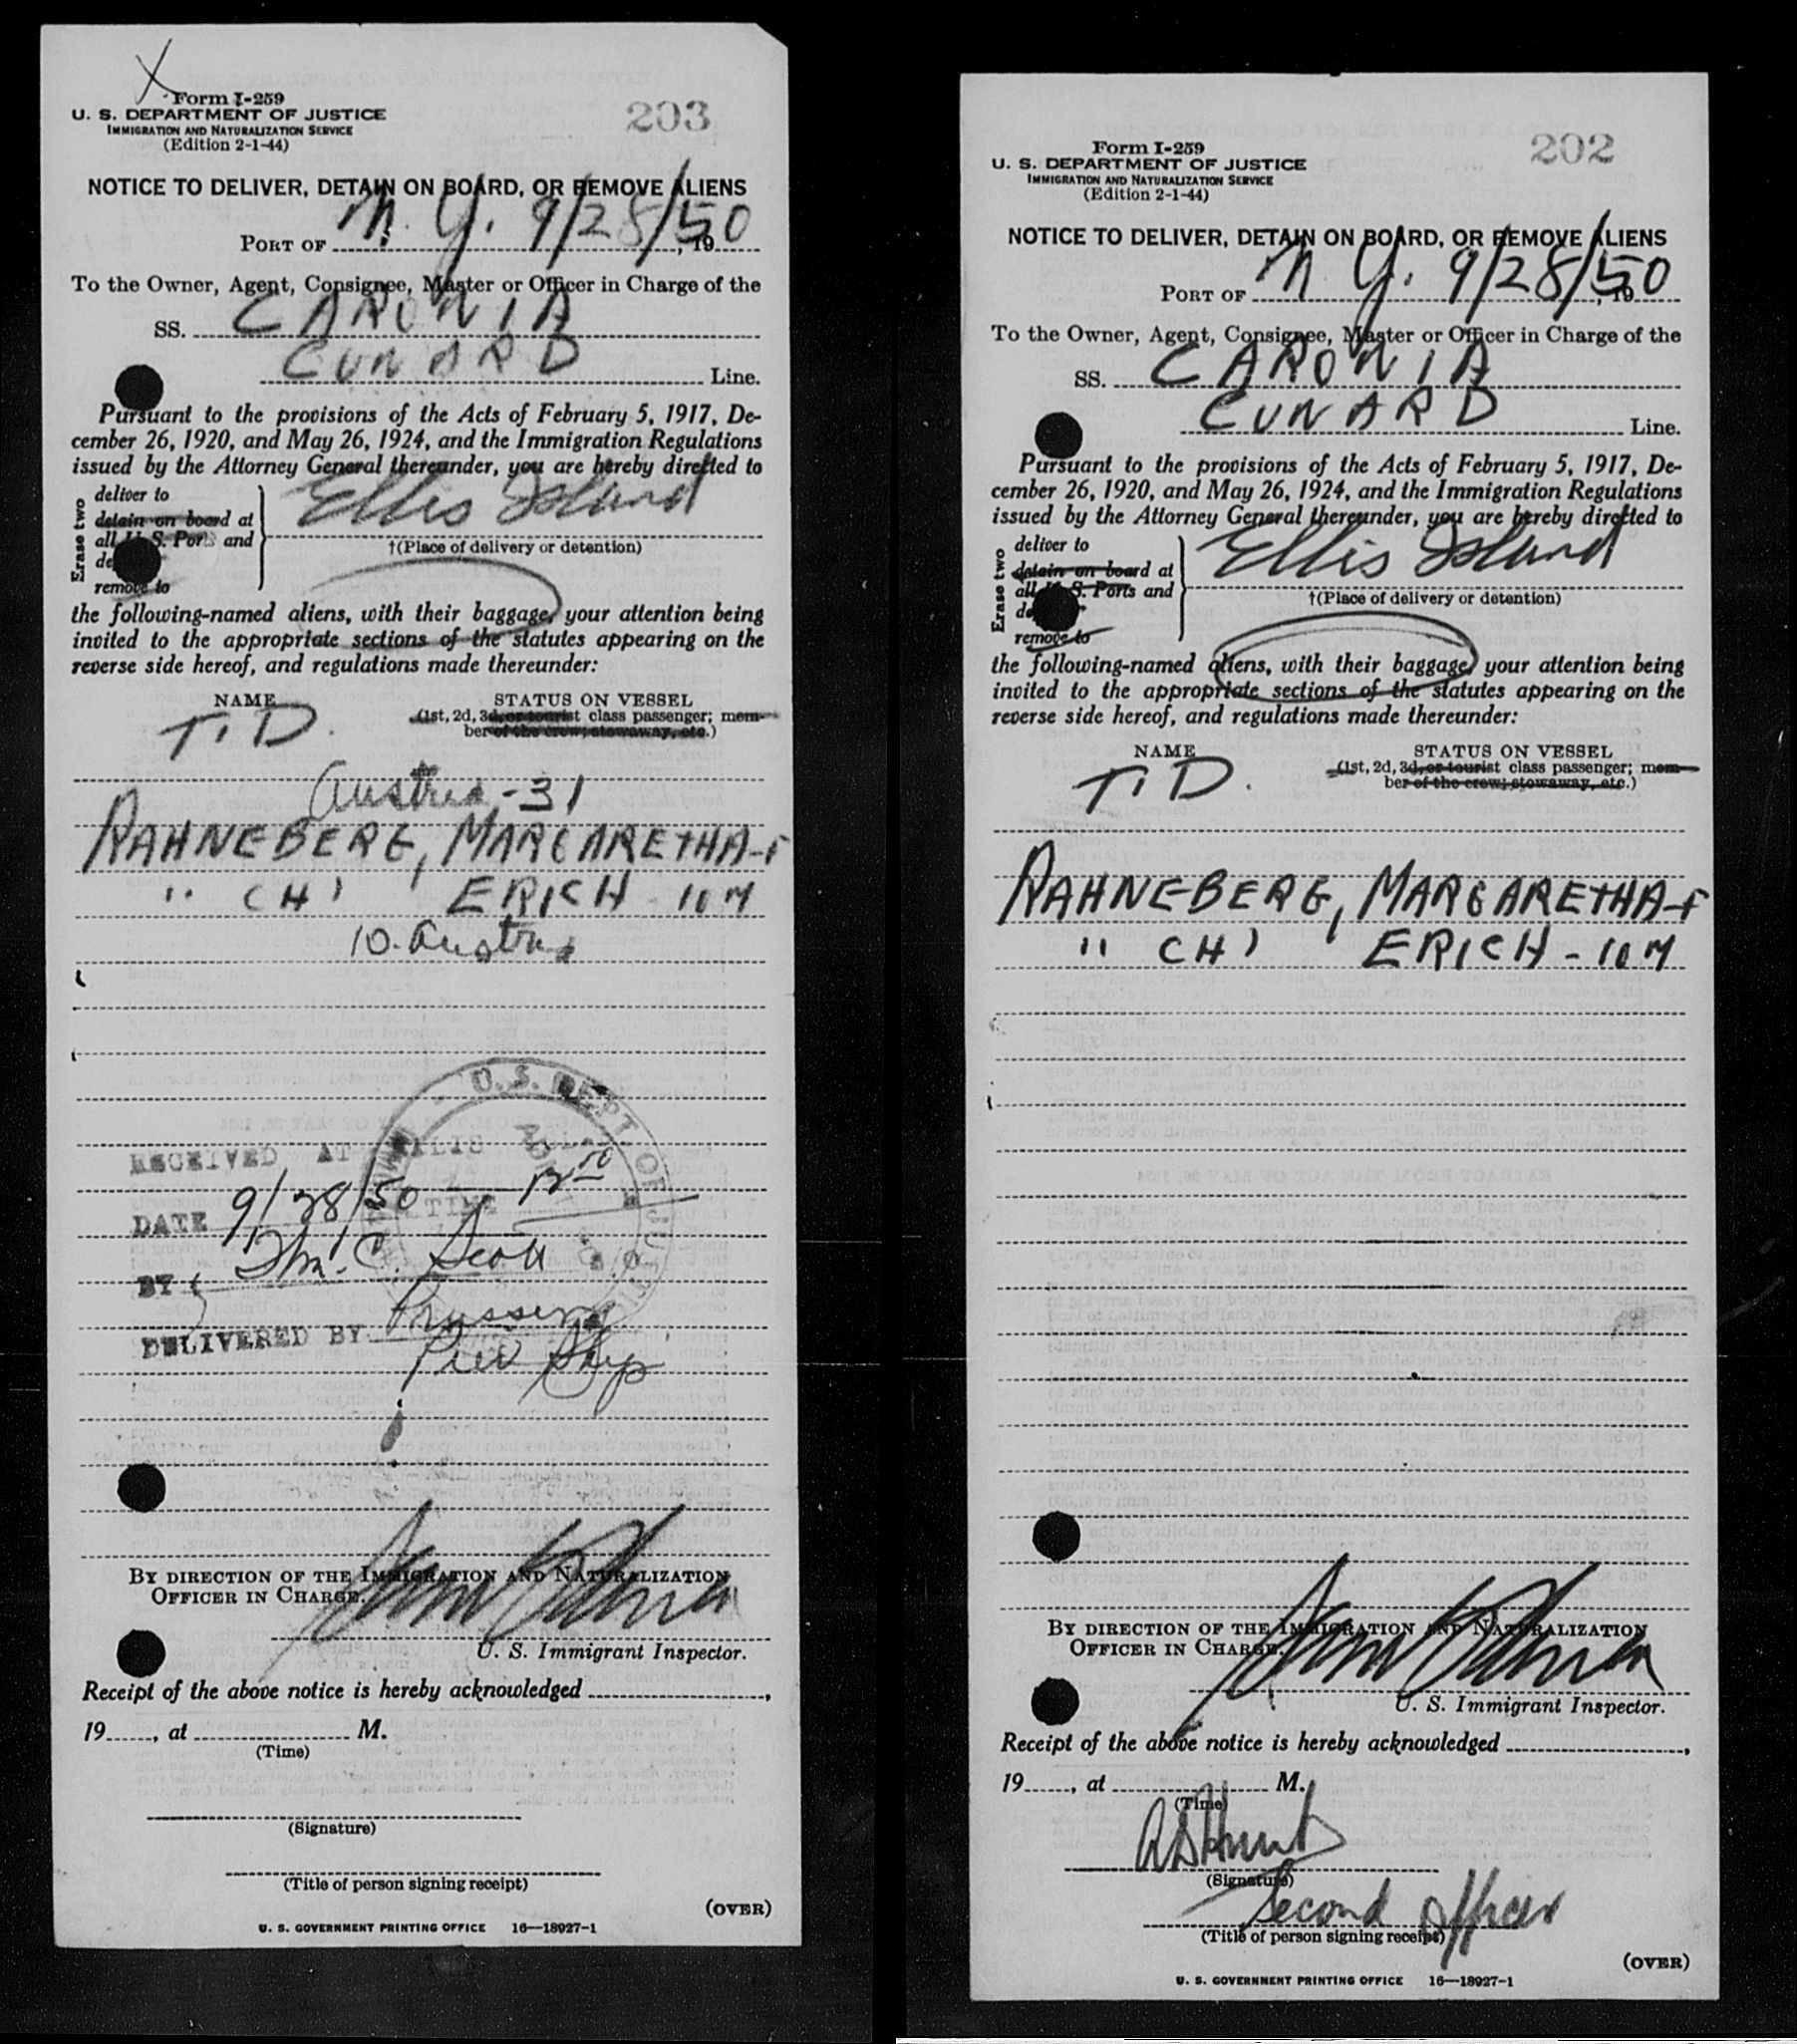 Form I-259
U. S. DEPARTMENT OF JUSTICE
IMMIGRATION AND NATURALIZATION SERVICE
(Edition 2-1-44)
203
NOTICE TO DELIVER, DETAIN ON BOARD, OR REMOVE ALIENS
PORT OF N. Y. 9/28/50, 19
To the Owner, Agent, Consignee, Master or Officer in Charge of the
SS. CARONIA
CUNARD Line.
Pursuant to the provisions of the Acts of February 5, 1917, De-
cember 26, 1920, and May 26, 1924, and the Immigration Regulations
issued by the Attorney General thereunder, you are hereby directed to
Erase two
deliver to
detain on board at
all U. S. Ports and
de
remove to
Ellis Island
†(Place of delivery or detention)
the following-named aliens, with their baggage, your attention being
invited to the appropriate sections of the statutes appearing on the
reverse side hereof, and regulations made thereunder:
NAME STATUS ON VESSEL
(1st, 2d, 3d, or tourist class passenger; mem-
ber of the crew; stowaway, etc.)
T. D.
Austria - 31
RAHNEBERG, MARGARETHA-F
" CH) ERICH - 10 M
10. Austria
U. S. DEPT. OF JUSTICE
RECEIVED AT ELLIS
DATE 9/28/50 TIME 12 50
BY Wm. C. Scott
DELIVERED BY Prussing
Pier Shep
BY DIRECTION OF THE IMMIGRATION AND NATURALIZATION
OFFICER IN CHARGE.
U. S. Immigrant Inspector.
Receipt of the above notice is hereby acknowledged ,
19 , at M.
(Time)
(Signature)
(Title of person signing receipt)
(OVER)
U. S. GOVERNMENT PRINTING OFFICE 16—18927-1
Form I-259
U. S. DEPARTMENT OF JUSTICE
IMMIGRATION AND NATURALIZATION SERVICE
(Edition 2-1-44)
202
NOTICE TO DELIVER, DETAIN ON BOARD, OR REMOVE ALIENS
PORT OF N Y. 9/28/50, 19
To the Owner, Agent, Consignee, Master or Officer in Charge of the
SS. CARONIA
CUNARD Line.
Pursuant to the provisions of the Acts of February 5, 1917, De-
cember 26, 1920, and May 26, 1924, and the Immigration Regulations
issued by the Attorney General thereunder, you are hereby directed to
Erase two
deliver to
detain on board at
all U. S. Ports and
de
remove to
Ellis Island
†(Place of delivery or detention)
the following-named aliens, with their baggage, your attention being
invited to the appropriate sections of the statutes appearing on the
reverse side hereof, and regulations made thereunder:
NAME STATUS ON VESSEL
(1st, 2d, 3d, or tourist class passenger; mem-
ber of the crew; stowaway, etc.)
T. D.
RAHNEBERG, MARGARETHA-F
" CH) ERICH - 10 M
BY DIRECTION OF THE IMMIGRATION AND NATURALIZATION
OFFICER IN CHARGE.
U. S. Immigrant Inspector.
Receipt of the above notice is hereby acknowledged ,
19 , at M.
(Time)
Hunt
(Signature)
Second Officer
(Title of person signing receipt)
(OVER)
U. S. GOVERNMENT PRINTING OFFICE 16—18927-1